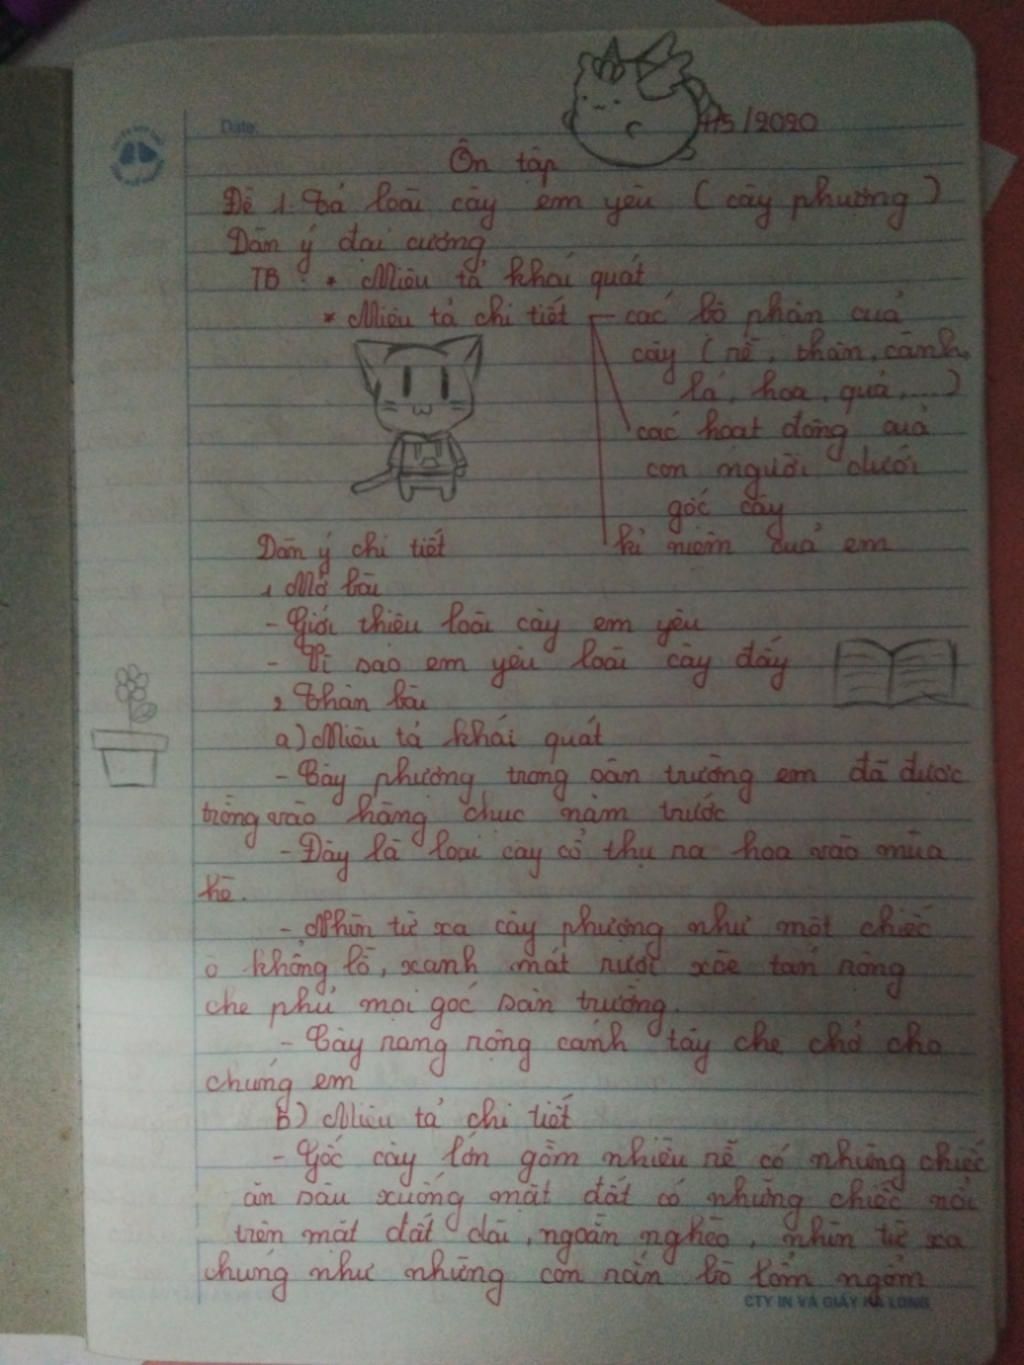 Date:
4/5/2020
Ôn tập
Đề 1. Tả loài cây em yêu (cây phượng)
Dàn ý đại cương
TB : * Miêu tả khái quát
* Miêu tả chi tiết
các bộ phận của
cây (rễ, thân, cành,
lá, hoa, quả,.....)
các hoạt động của
con người dưới
gốc cây
kỉ niệm của em
Dàn ý chi tiết
1 Mở bài
- Giới thiệu loài cây em yêu
- Vì sao em yêu loài cây đấy
2 Thân bài
a) Miêu tả khái quát
- Cây phượng trong sân trường em đã được
trồng vào hàng chục năm trước
- Đây là loại cây cổ thụ ra hoa vào mùa
hè.
- Nhìn từ xa cây phượng như một chiếc
ô khổng lồ, xanh mát rượi xòe tán rộng
che phủ mọi góc sân trường.
- Cây rang rộng cánh tay che chở cho
chúng em
b) Miêu tả chi tiết
- Gốc cây lớn gồm nhiều rễ có những chiếc
ăn sâu xuống mặt đất có những chiếc nổi
trên mặt đất dài, ngoằn nghèo, nhìn từ xa
chúng như những con rắn bò lổm ngổm
CTY IN VÀ GIẤY HẠ LONG